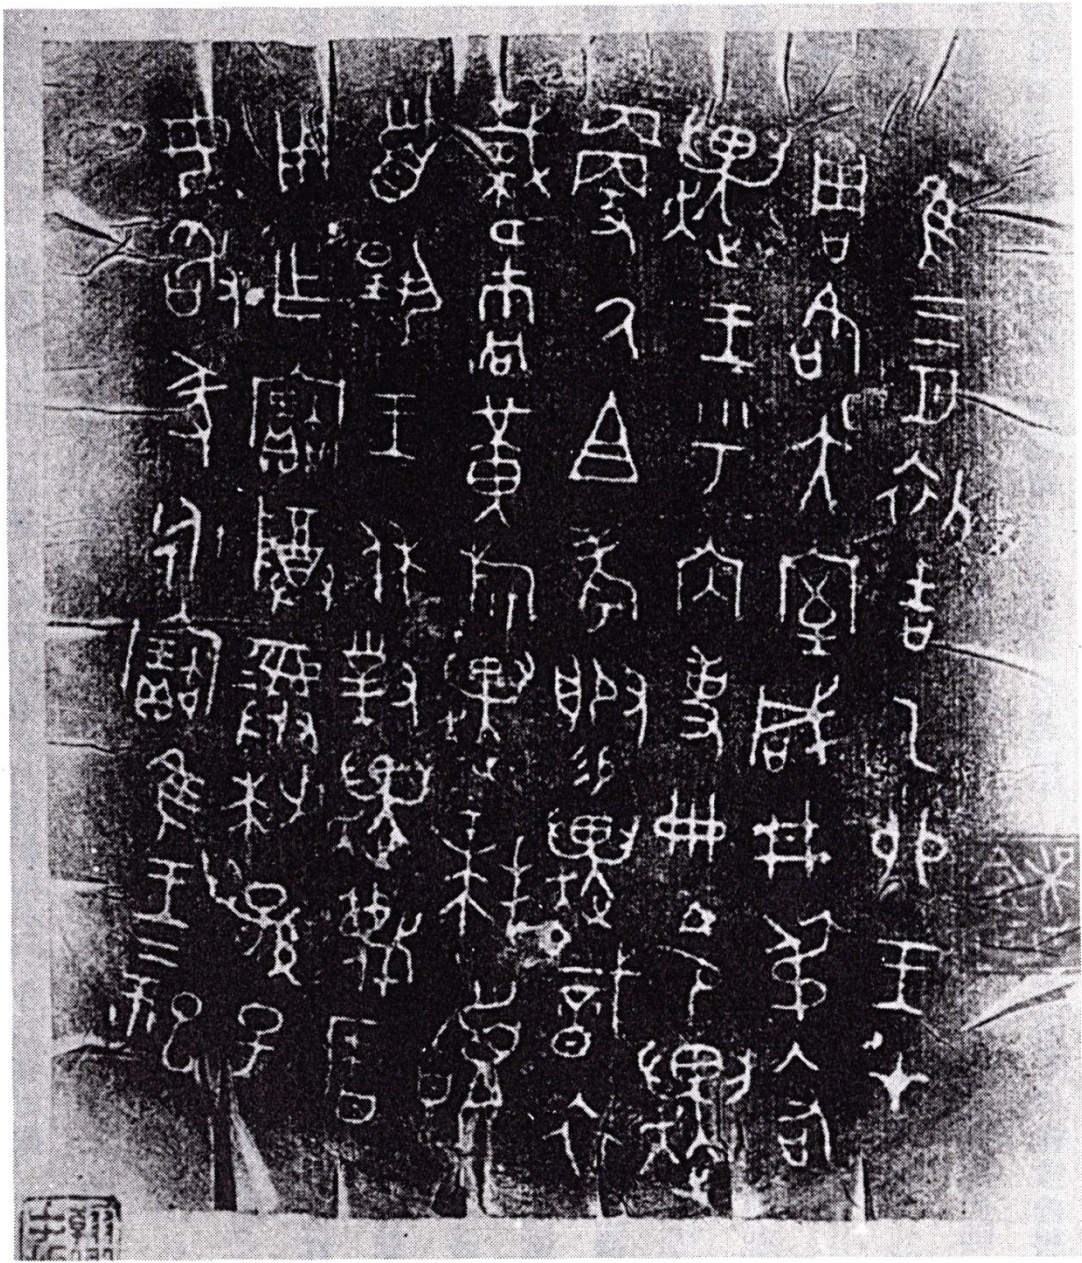 隹三月初吉乙卯王才
周各大室咸井叔入右
趩王乎內史冊令趩
更氒且考服易趩戠衣
載巿冋黃旂趩拜𩒨首
揚王休對趩蔑曆用
乍寶尊彝枻孫子
毋敢墜永寶隹王二祀